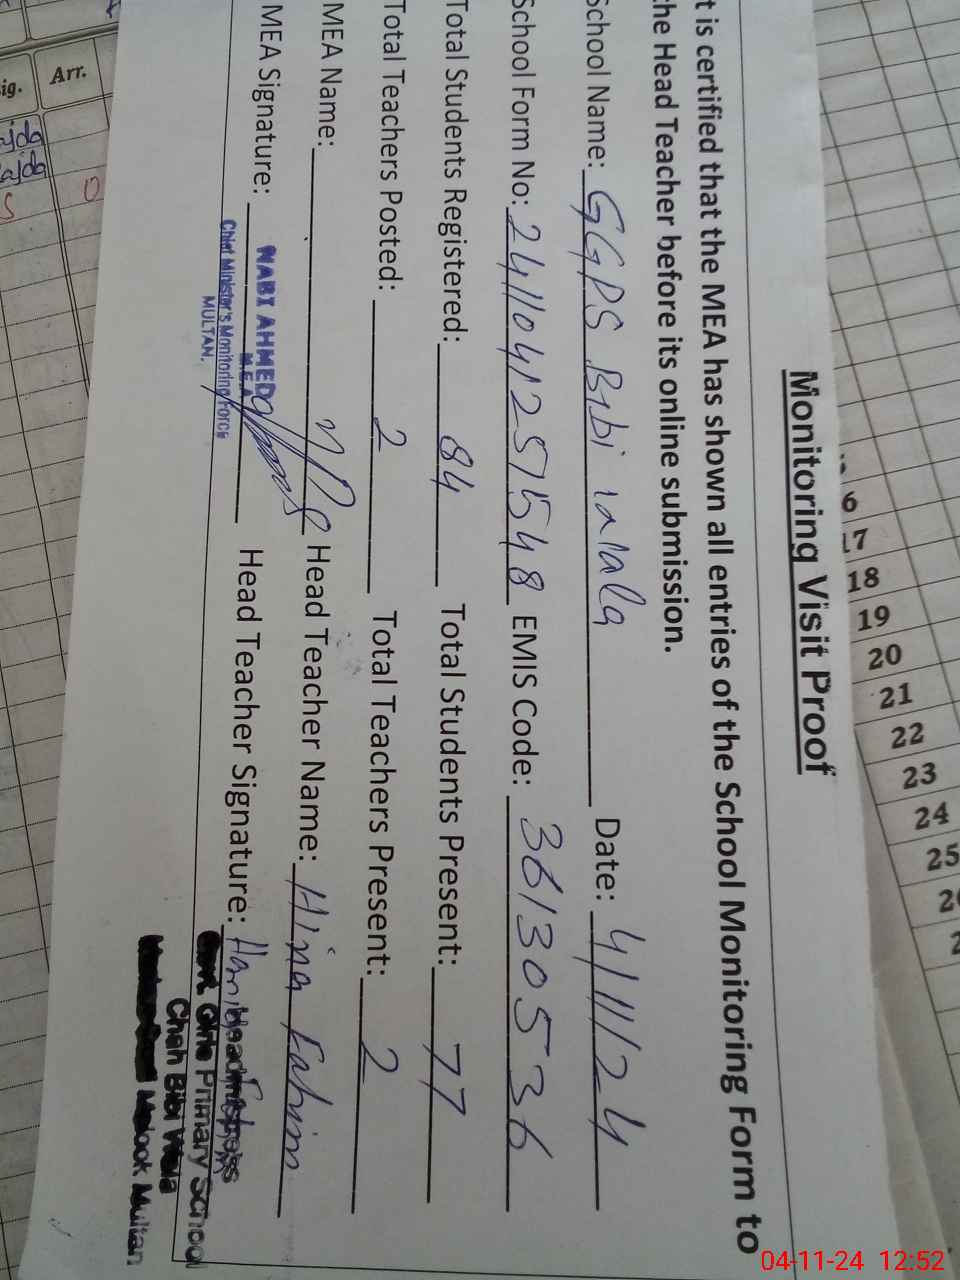 Monitoring Visit Proof
t is certified that the MEA has shown all entries of the School Monitoring Form to
he Head Teacher before its online submission.
School Name: GGPS Bibi Date: 4/11/24
School Form No: EMIS Code: 36130536
Total Students Registered: 84 Total Students Present: 77
Total Teachers Posted: 2 Total Teachers Present: 2
MEA Name: Head Teacher Name: Hina Fahim
MEA Signature: Head Teacher Signature:
NABI AHMED
M.E.A
Chief Minister's Monitoring Force
MULTAN.
Headmistress
Govt. Girls Primary School
Chah Bibi Wala
Multan
ig. Arr.
0
6
17
18
19
20
21
22
23
24
25
04-11-24 12:52